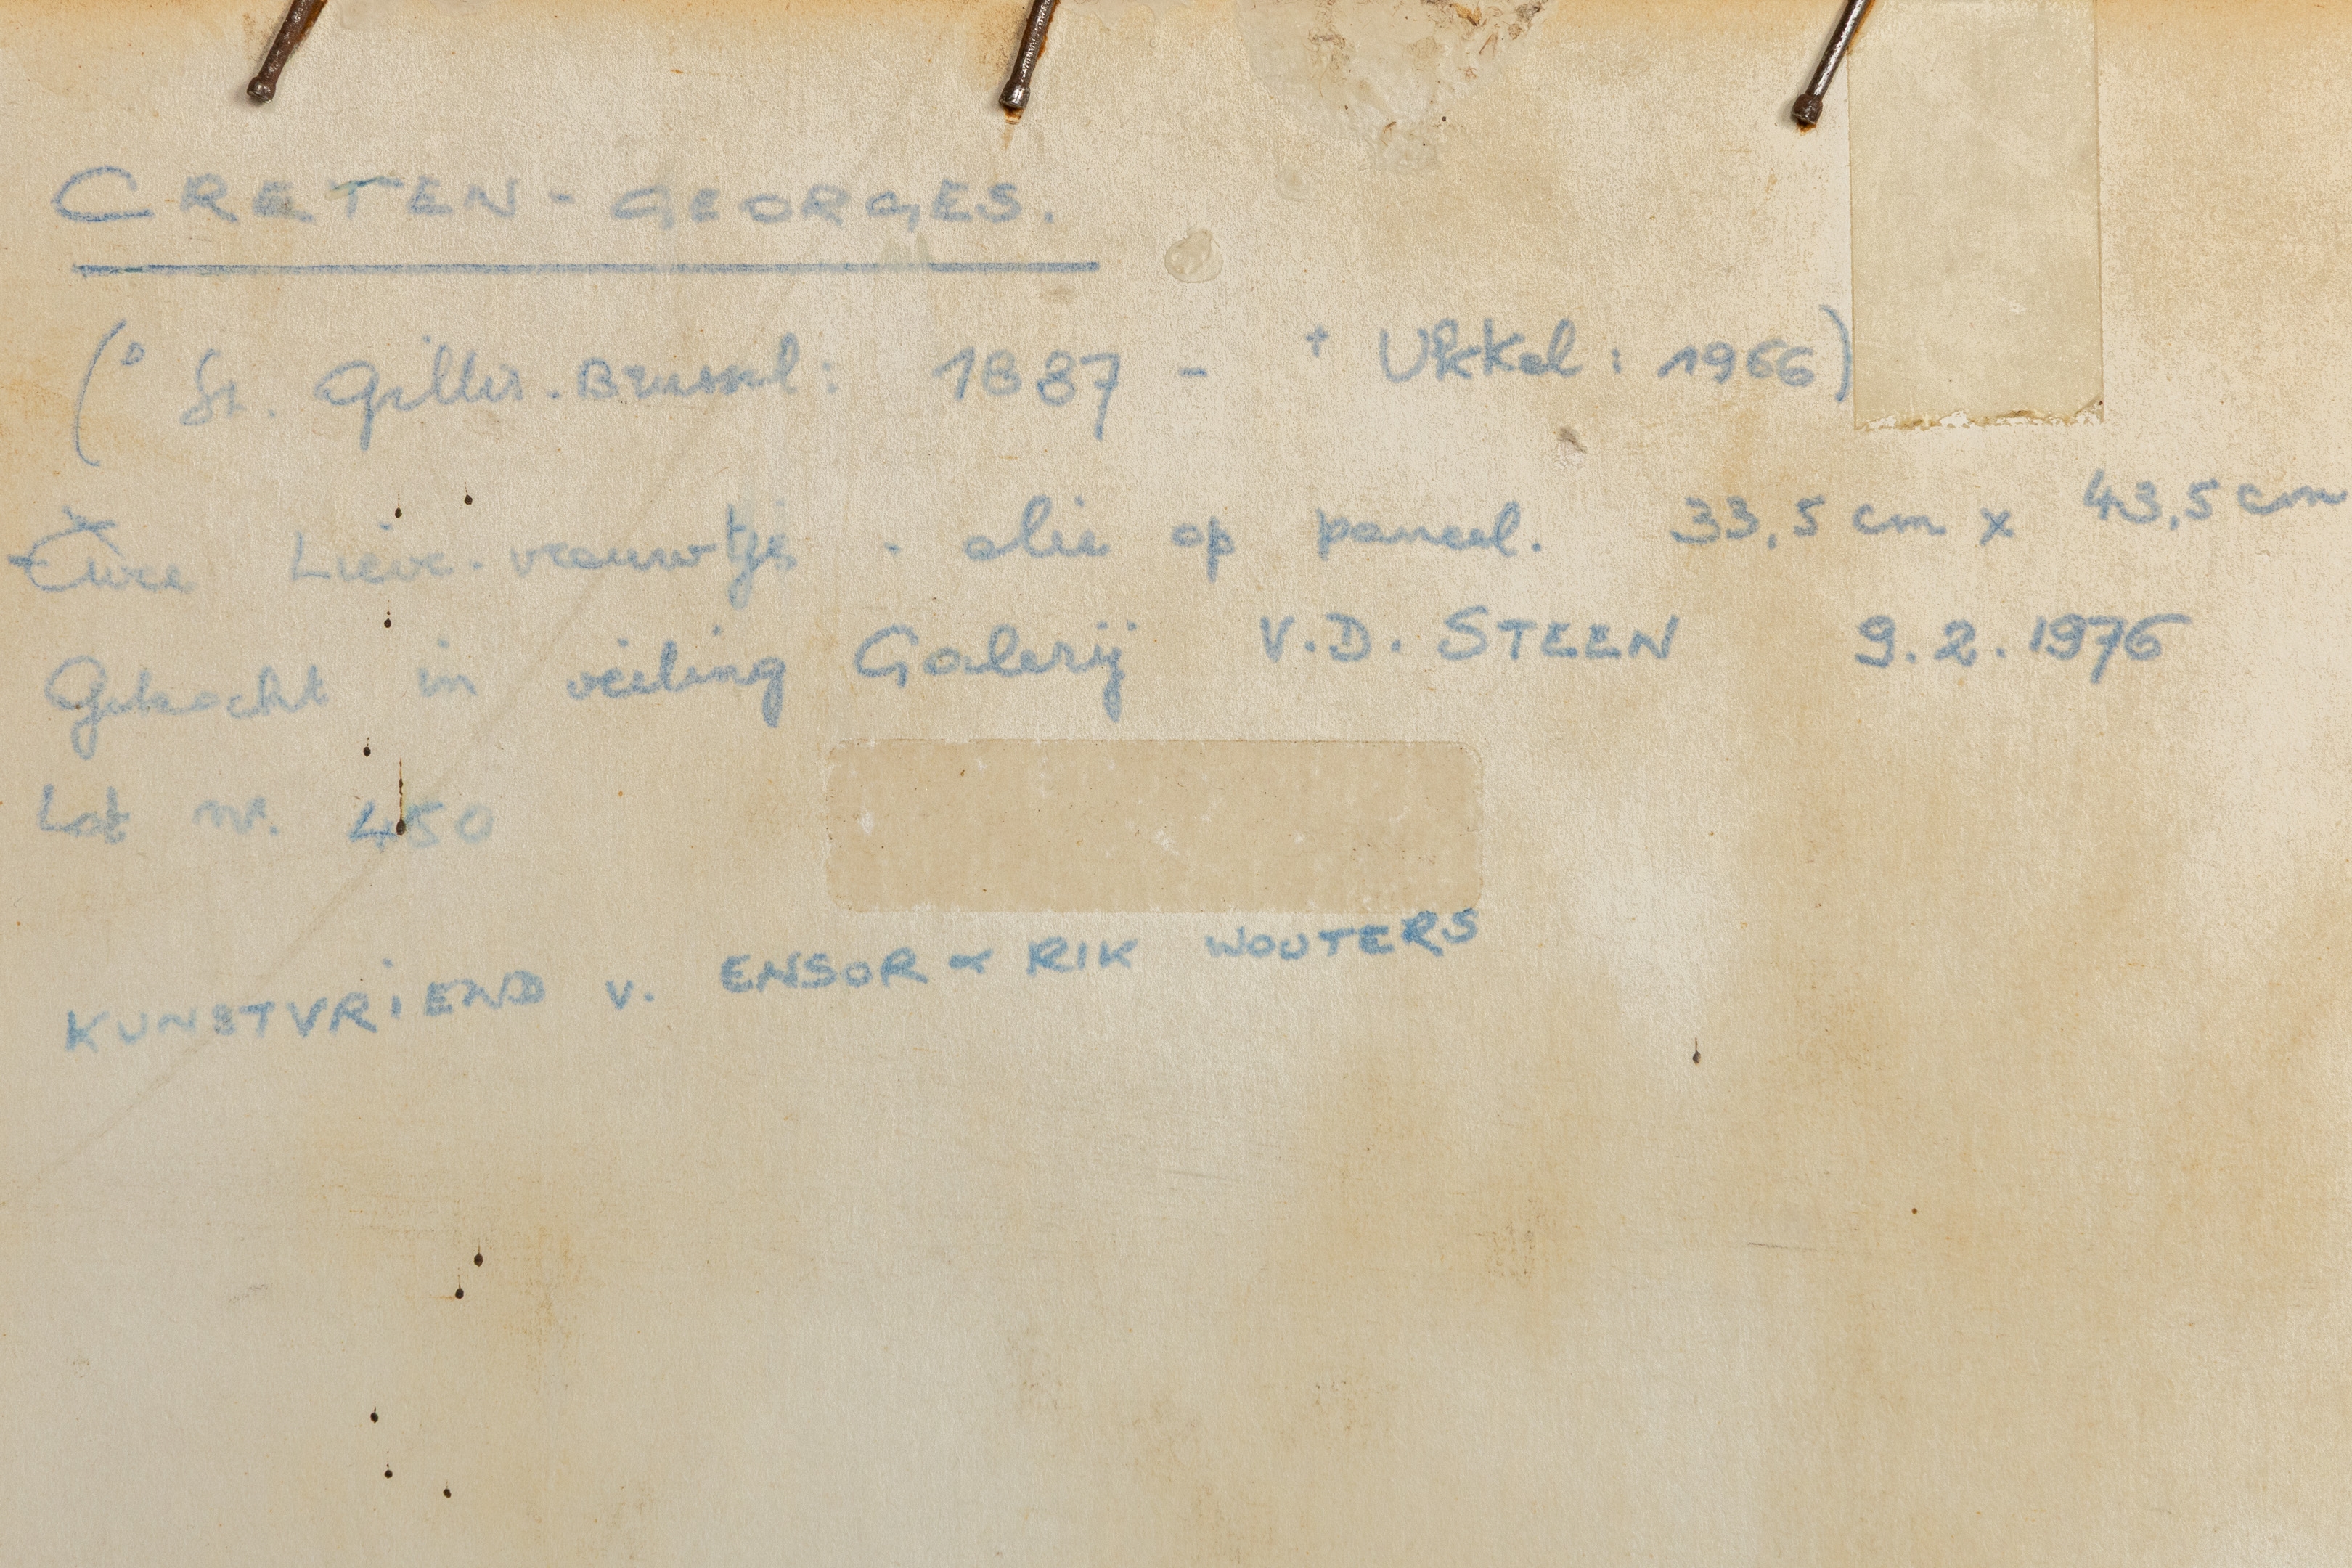 CRETEN - GEORGES.
(° St. Gilles. Brussel: 1887 - + Ukkel: 1966)
Lieve-vrouwtje - olie op paneel. 33,5 cm x 43,5 cm
Gekocht in veiling Galerij V.D. STEEN 9.2.1976
Lot nr. 450
KUNSTVRIEND v. ENSOR & RIK WOUTERS